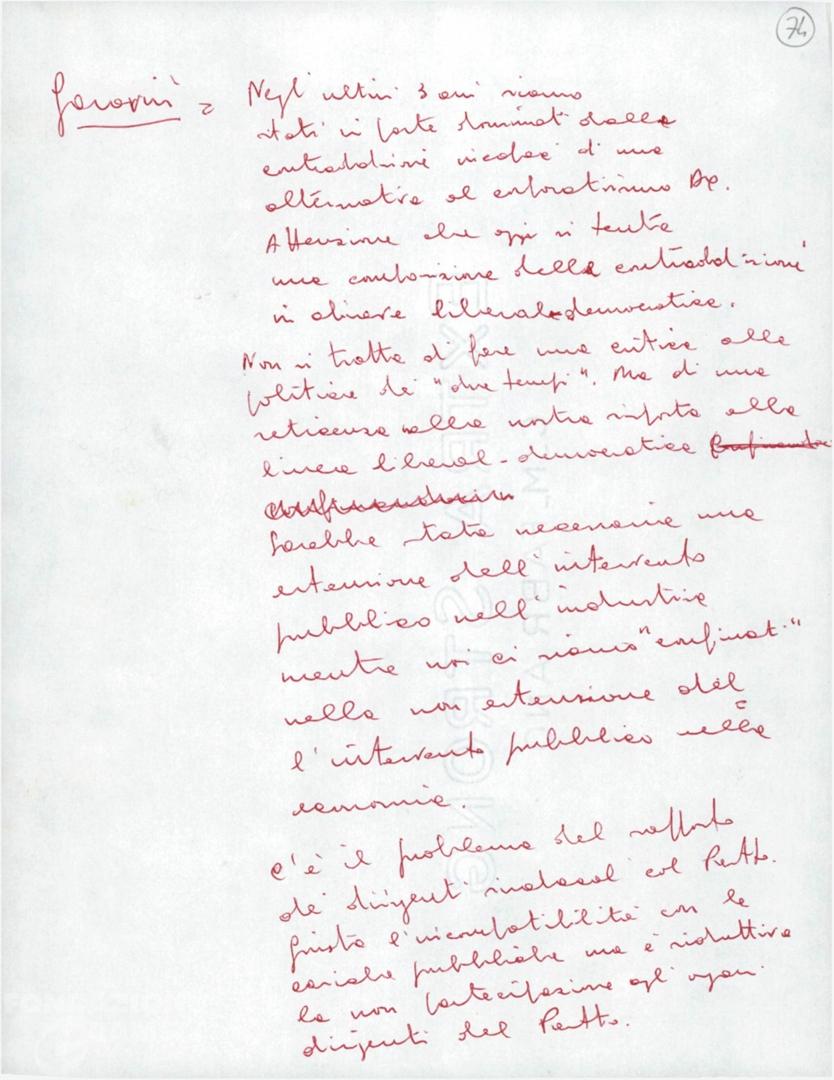 74
Garavini = Negli ultimi 3 anni siamo
stati in parte dominati dalla
contraddizione sindacc di una
alternativa al corporativismo Dc.
Attenzione che oggi si tenta
una composizione della contraddizione
in chiave liberaldemocratica.
Non si tratta di fare una critica alla
politica dei "due tempi". Ma di una
reticenza nella nostra risposta alla
linea liberal-democratica
Sarebbe stata necessaria una
estensione dell'intervento
pubblico nell'industria
mentre noi ci siamo "confinati"
nella non estensione del
l'intervento pubblico nella
economia.
C'è il problema del rapporto
dei dirigenti sindacali col Partito.
Giusta l'incompatibilità con le
cariche pubbliche ma è riduttiva
la non partecipazione agli organi
dirigenti del Partito.
EXTRA STRONG